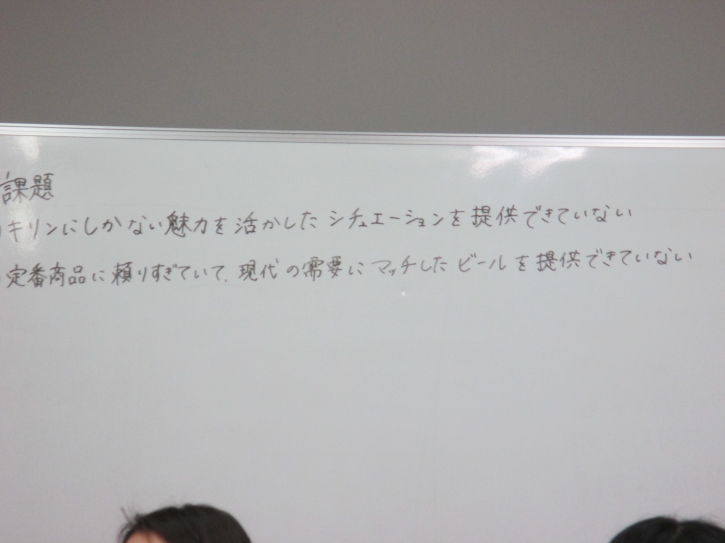 課題
キリンにしかない魅力を活かしたシチュエーションを提供できていない
定番商品に頼りすぎていて、現代の需要にマッチしたビールを提供できていない